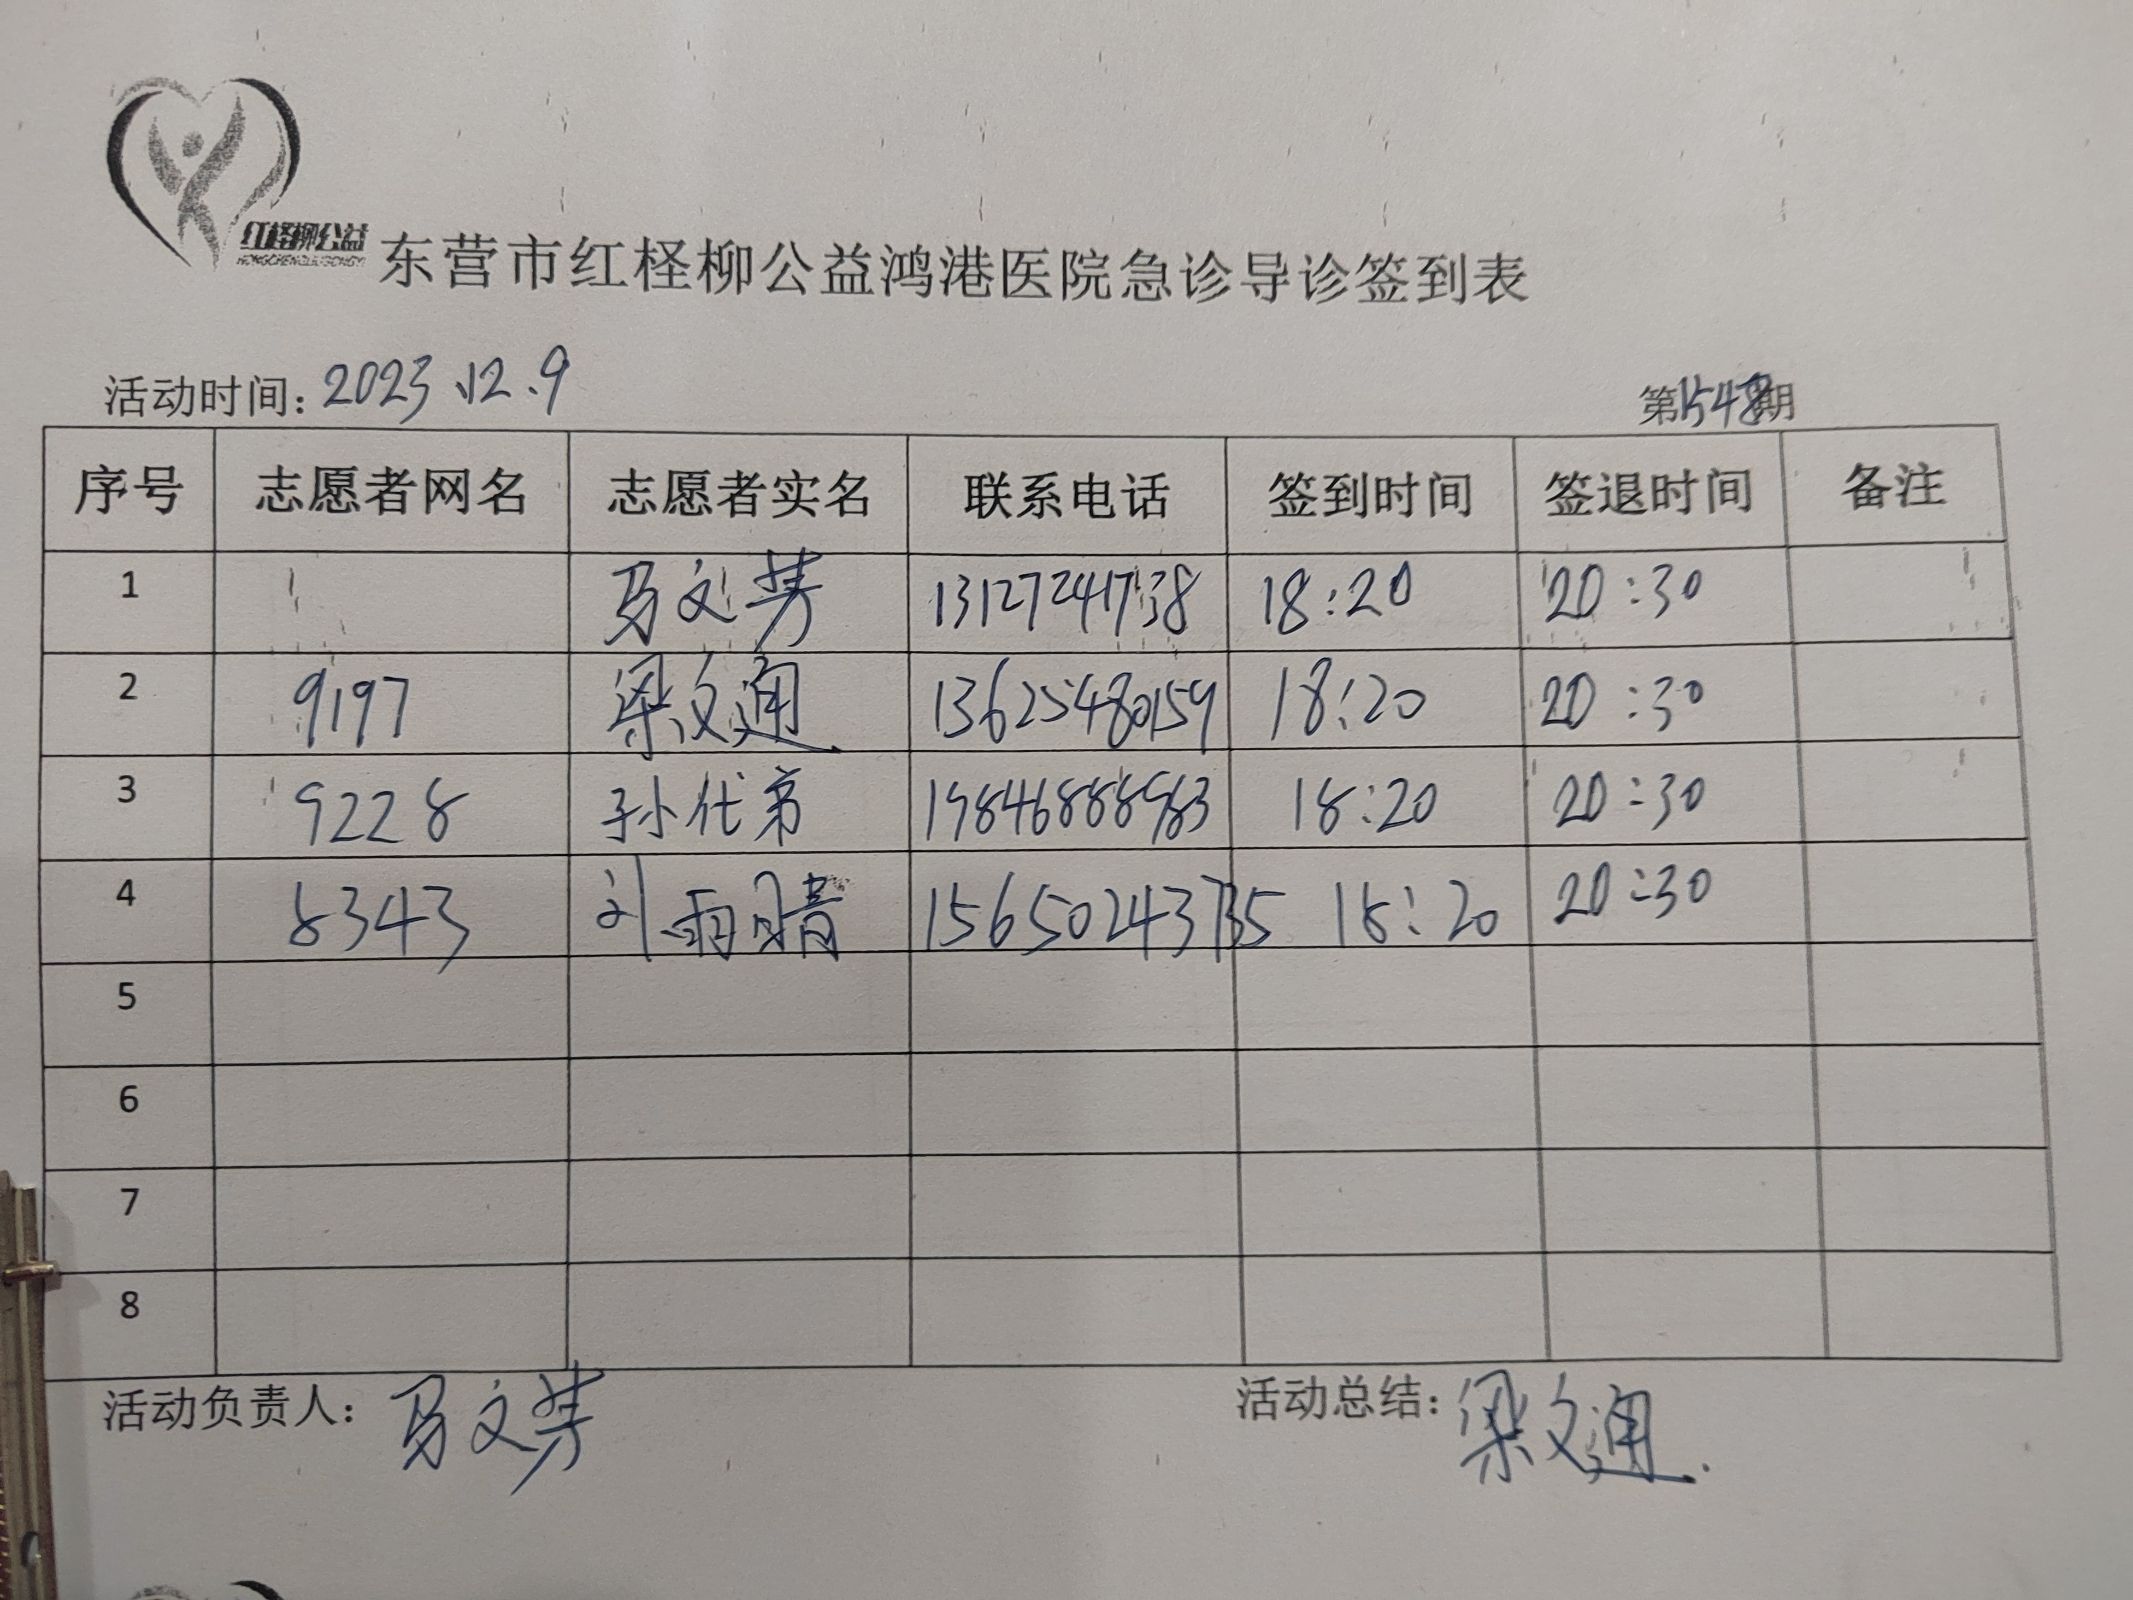 红柽柳公益
HONGCHENGLIUGONGYI
东营市红柽柳公益鸿港医院急诊导诊签到表
活动时间：2023.12.9 第1548期
序号 志愿者网名 志愿者实名 联系电话 签到时间 签退时间 备注
1 马文芳 13127241738 18:20 20:30
2 9197 梁文通 13625480159 18:20 20:30
3 9228 孙代弟 19846888983 18:20 20:30
4 8343 刘雨晴 15650243735 18:20 20:30
5
6
7
8
活动负责人：马文芳 活动总结：梁文通.